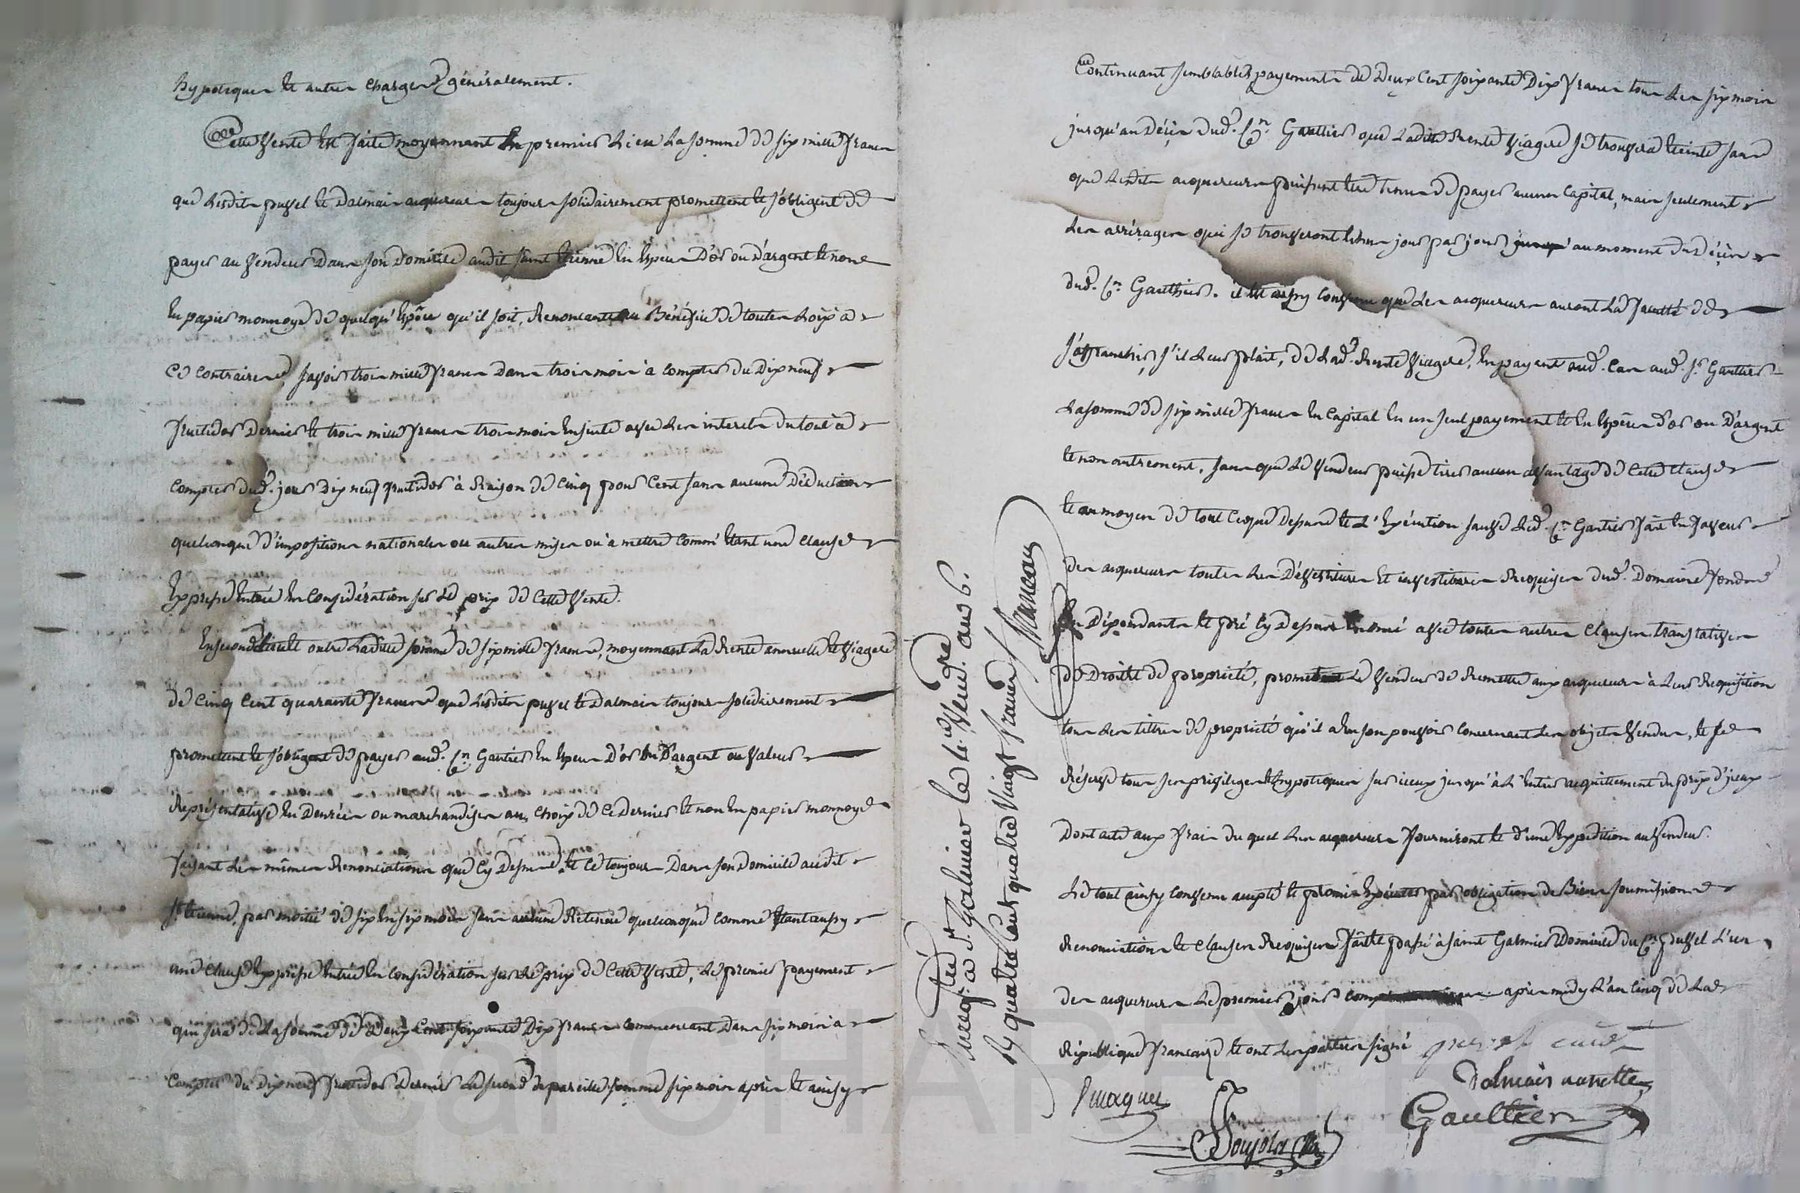 hypoteques et autres charges généralement.
Cette Vente est faite moyennant En premier Lieu La somme de six mille francs
que Lesdits puzel et Dalmais acquereurs toujours solidairement promettent et s'obligent de
payer au Vendeur Dans son Domicile audit saint Etienne En Espèces D'or ou d'argent et non
En papier monnoye de quelqu'Espèce qu'il soit, Renoncants au Bénéfice de toutes Loix à
Ce Contraires, savoir trois mille francs Dans trois mois à compter du Dix neuf
fructidor Dernier et trois mille francs trois mois Ensuite avec Les interets du tout à
Compter dud. jour Dix neuf fructidor à Raison de Cinq pour Cent sans aucune Déduction
quelconque d'impositions nationales ou autres mises ou à mettre Comm'Etant une Clause
Expresse Entrée En Considération sur Le prix de Cette Vente.
En second Lieu et outre Laditte somme de six mille francs, moyennant La Rente annuelle et Viagere
de Cinq Cent quarante francs que Lesdits puzel et Dalmais toujours solidairement
promettent et s'obligent de payer aud. Cn. Gautier En Espèces D'or ou D'argent ou Valeur
Représentative En Denrées ou marchandises au Choix de Ce Dernier et non En papier monnoye
faisant Les mêmes Renonciations que Cy Dessus et Ce toujours Dans son Domicile audit
St. Etienne, par moitié de six En six mois sans aucune Retenue quelconque Comme Etant aussy
une Clause Expresse Entrée En Considération sur Le prix de Cette Vente, Le premier payement
qui sera de La somme de Deux Cent soixante Dix francs Commencant Dans six mois à
Compter du Dix neuf fructidor Dernier Le second de pareille somme six mois après et ainsy
Continuant semblables payements de Deux Cent soixante Dix francs tous Les six mois
jusqu'au Décès dud. Cn. Gauttier que Laditte Rente Viagere se trouvera Eteinte sans
que Lesdits acquereurs puissent Etre tenus de payer aucun Capital, mais seulement
Les arrérages qui se trouveront Echus jour par jour au moment du Décès
dud. Cn. Gautthier. il est aussy Convenu que Les acquereurs auront La faculté de
s'affranchir, s'il Leur plait, de Lad. Rente Viagere, En payant aud. Cas aud. Sr. Gauttier
La somme de six mille francs En Capital En un seul payement et En Espèces d'or ou D'argent
et non autrement, sans que Le Vendeur puisse tirer aucun avantage de Cette Clause
et au moyen de tout Ce que Dessus et L'Exécution sauve Led. Cn. Gautier fait En faveur
des acquereurs toutes Les Dévestitures et investitures Requises dud. Domaine fonds
En Dépendants et pré Cy Dessus Enoncé avec toutes autres Clauses translatives
de Droits de propriété, promettant Le Vendeur de Remettre aux acquereurs à Leur Requisition
tous Les titres de propriété qu'il a En son pouvoir Concernant Les objets Vendus, et se
Réserve tous ses privileges Et hypoteques sur iceux jusqu'à L'Entier acquittement du prix d'iceux
Dont acte aux frais du quel Les acquereurs fourniront et d'une Expedition au Vendeur.
Le tout ainsy Convenu accepté et promis Exécuter par obligation de Biens soumissions
Renonciations et Clauses Requises fait et passé à saint Galmier Domicile du Cn. puzel L'un
des acquereurs Le premier jour après midy L'an Cinq de La
République francaise et ont Les parties signé
Dalmais
Gaulttier
Enregtré à St. Galmier le Vend.re an 6.
quatre Cent quatre Vingt francs